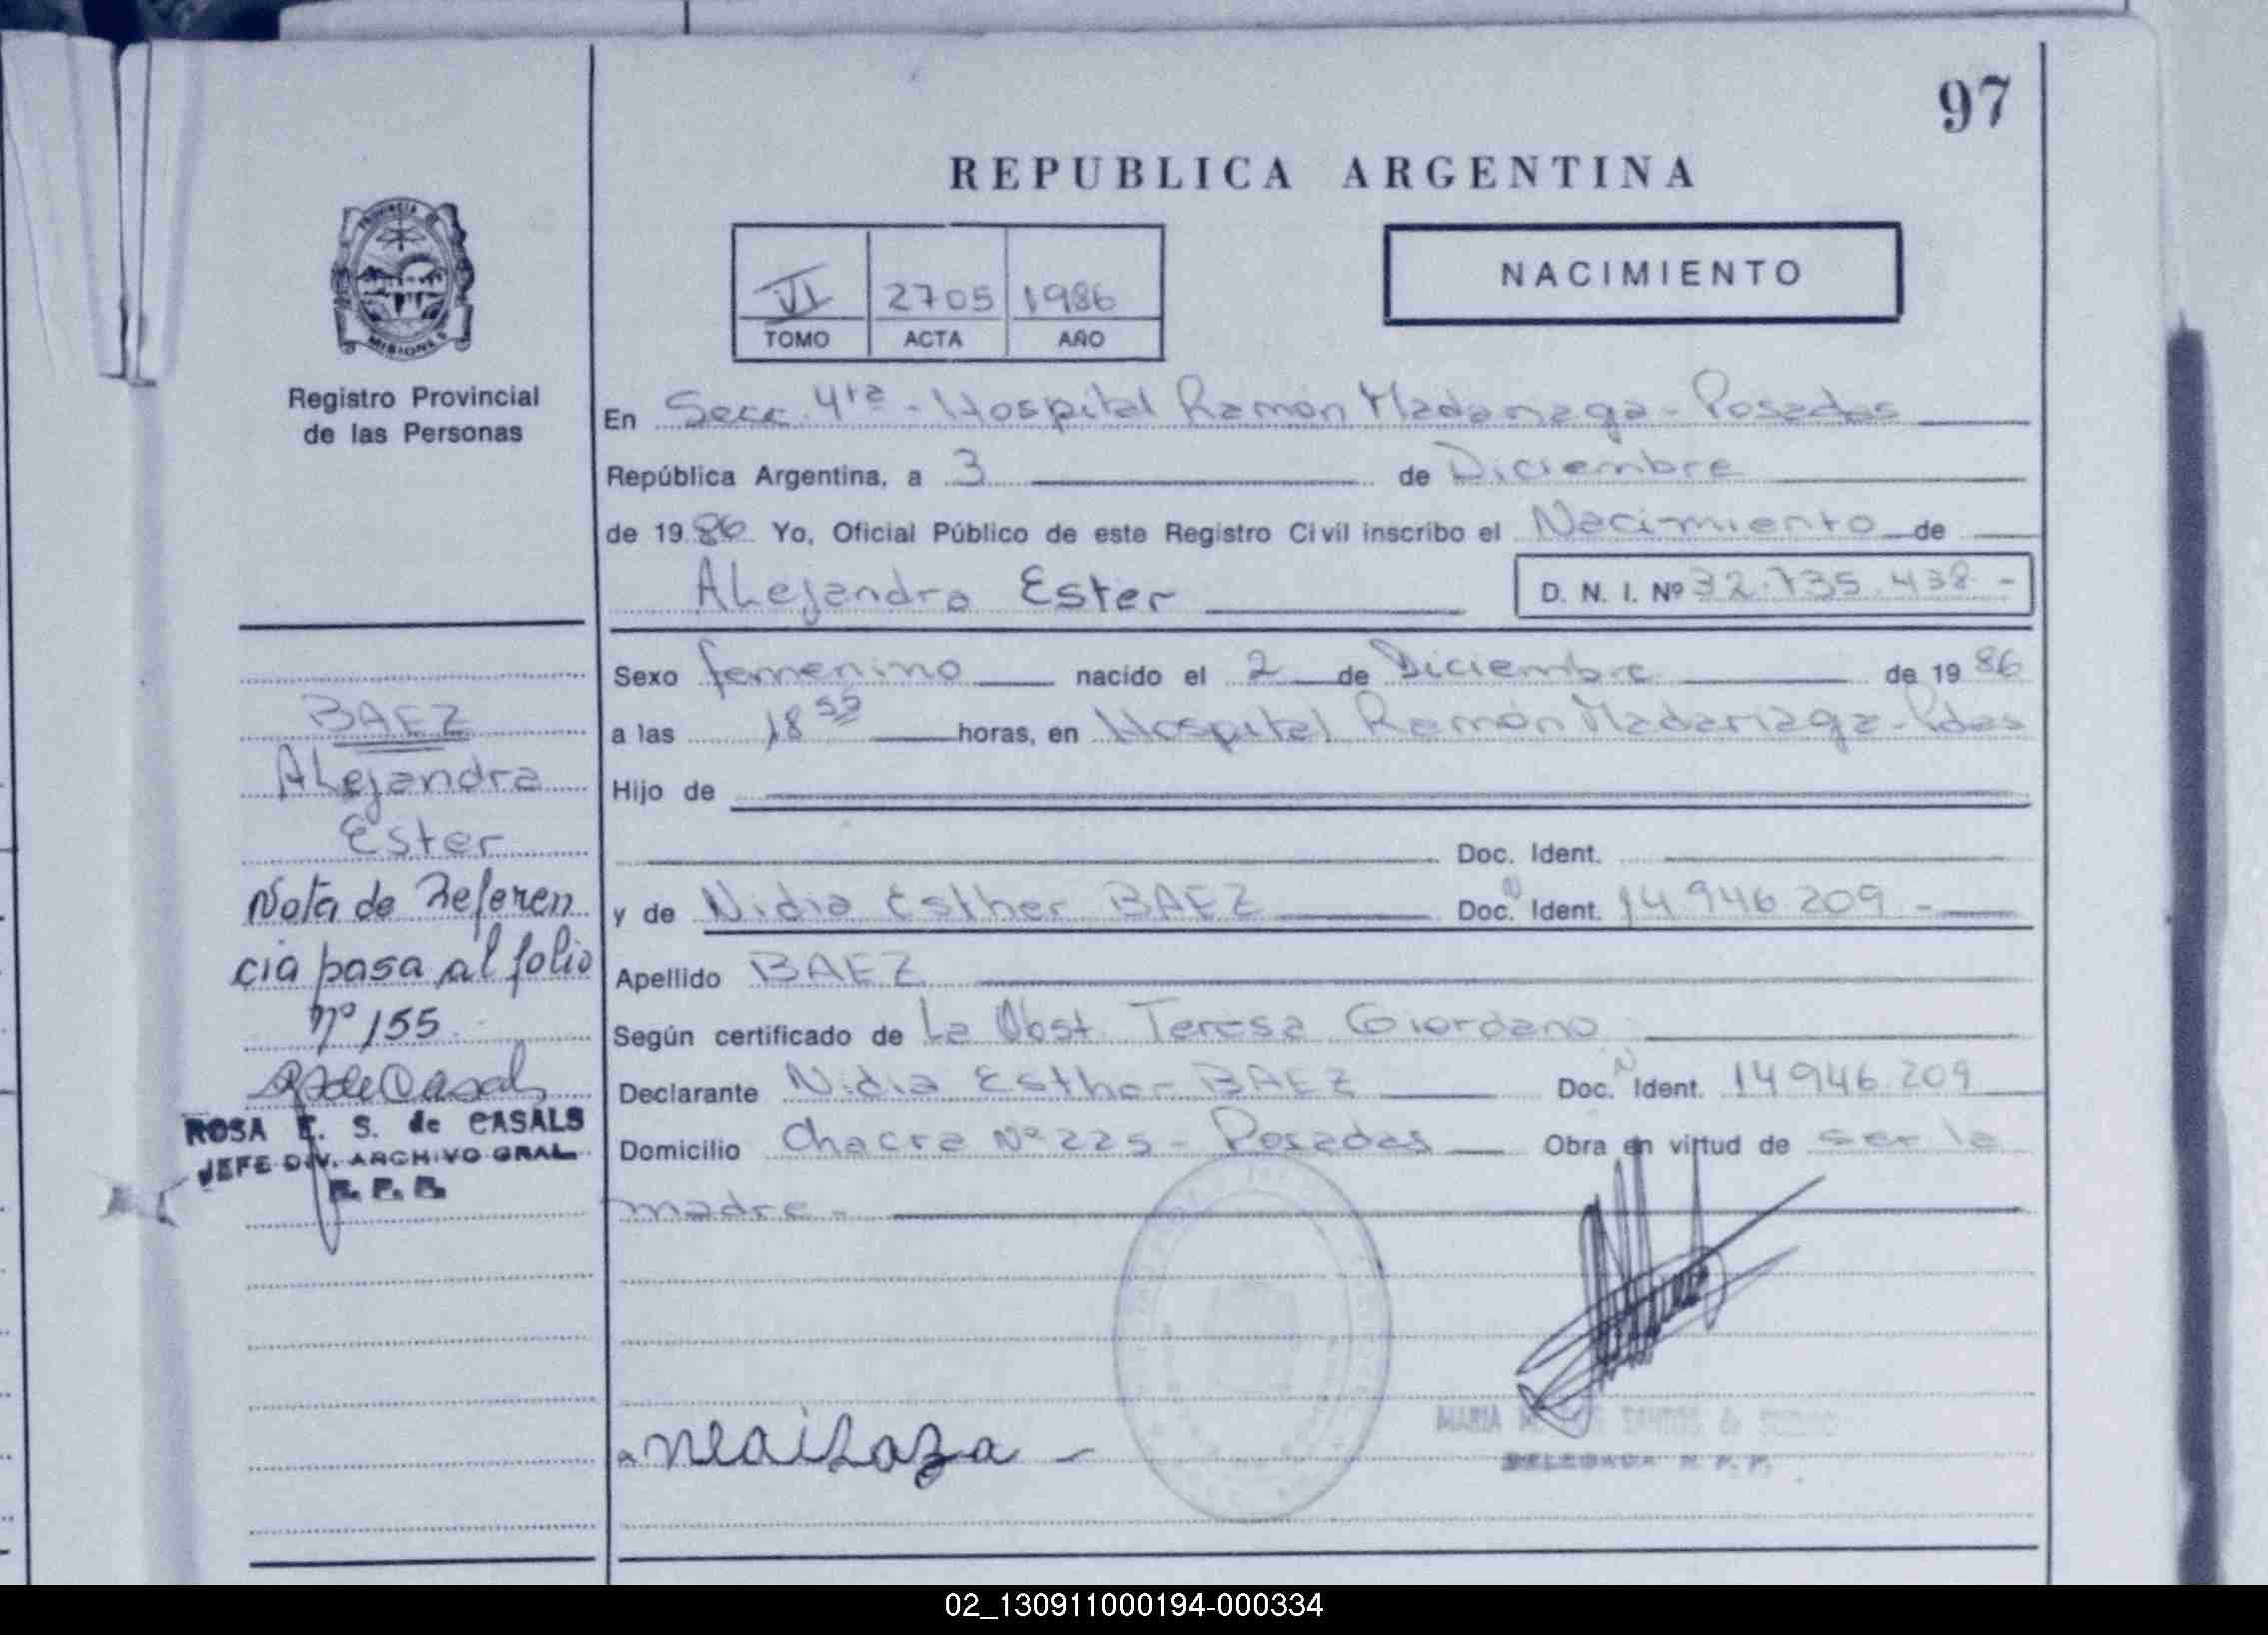 97
REPUBLICA ARGENTINA
PROVINCIA DE
MISIONES
Registro Provincial
de las Personas
VI 2705 1986
TOMO ACTA AÑO
NACIMIENTO
En Secc. 4ta - Hospital Ramón Madariaga - Posadas
República Argentina, a 3 de Diciembre
de 1986 Yo, Oficial Público de este Registro Civil inscribo el Nacimiento de
Alejandra Ester D. N. I. Nº 32.735.438 -
Sexo femenino nacido el 2 de Diciembre de 1986
a las 18 55 horas, en Hospital Ramón Madariaga - Pdas
Hijo de
Doc. Ident.
y de Nidia Esther BAEZ Doc. N Ident. 14.946.209 -
Apellido BAEZ
Según certificado de La Obst. Teresa Giordano
Declarante Nidia Esther BAEZ Doc. N Ident. 14.946.209
Domicilio Chacra Nº 225 - Posadas Obra en virtud de ser la
madre -
BAEZ
Alejandra
Ester
Nota de Referen
cia pasa al folio
nº 155
RSdeCasals
ROSA E. S. de CASALS
JEFE DIV. ARCHIVO GRAL.
R. P. P.
MARIA SANTOS de
DELEGADA R. P. P.
02_130911000194-000334